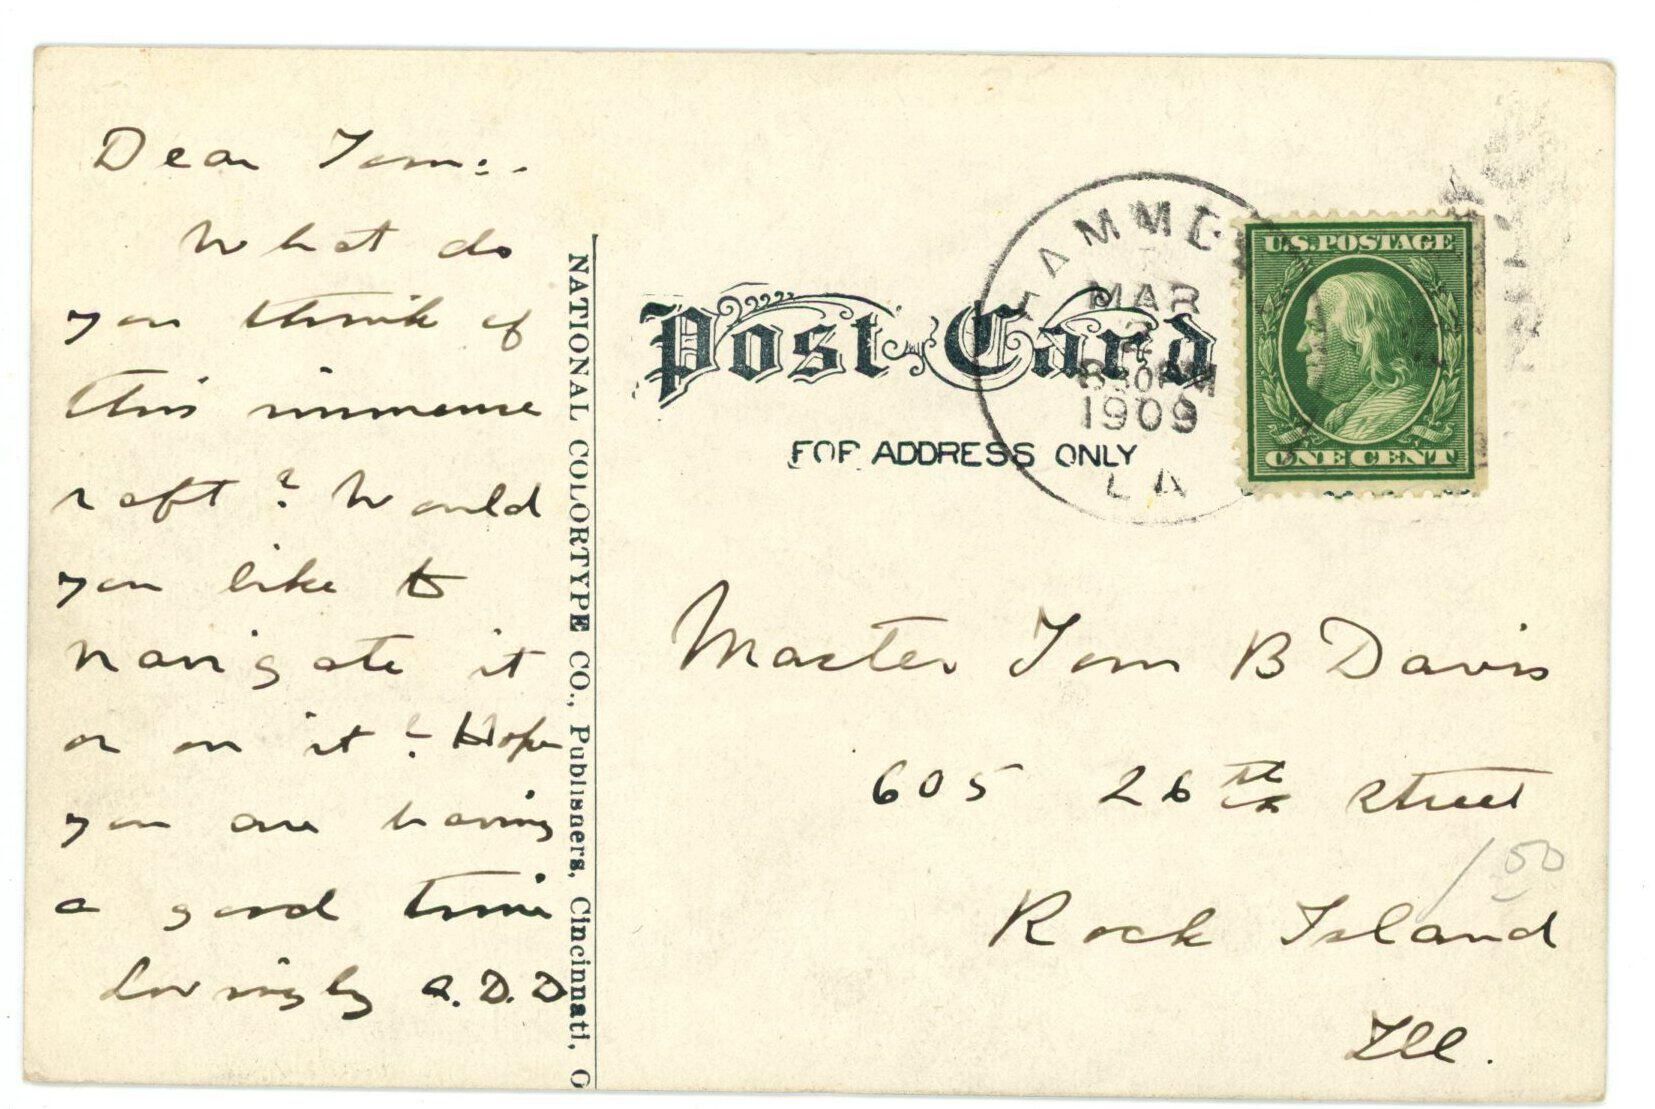 Dear Tom:-
What do
you think of
this immense
raft? Would
you like to
navigate it
or on it? Hope
you are having
a good time
Lovingly A.D.D
NATIONAL COLORTYPE CO., Publishers, Cincinnati, O
Post Card
FOR ADDRESS ONLY
MAR
830PM
1909
LA
U.S. POSTAGE
ONE CENT
Master Tom B Davis
605 26th Street
1 50
Rock Island
Ill.